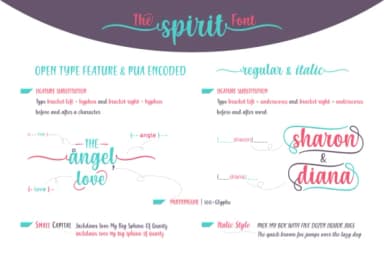 The spirit Font
OPEN TYPE FEATURE & PUA ENCODED
FEATURE SUBSTITUTION
Type bracket left - hyphen and bracket right - hyphen
before and after a character
THE
angel
love
{- angle }
{- love }
regular & italic
FEATURE SUBSTITUTION
Type bracket left - underscore and bracket right - underscore
before and after word
sharon
&
diana
Multilingual | 500+Glyphs
SMALL CAPITAL
Jackdaws Love My Big Sphinx Of Quartz
Jackdaws love my big sphinx of Quartz
Italic Style
PICK MY BOX WITH FIVE DOZEN LIQUOR JUGS
The quick brown fox jumps over the lazy dog